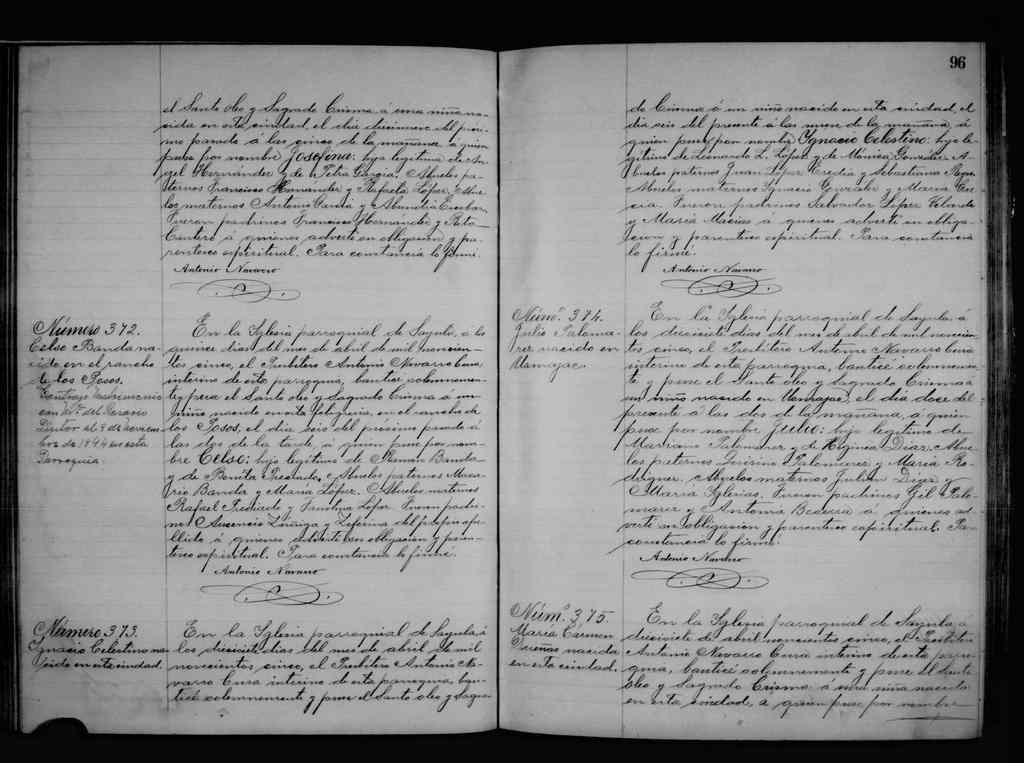 el Santo Oleo y Sagrado Crisma á una niña na-
cida en esta ciudad, el día del pró-
ximo pasado á las cinco de la mañana á quien
puse por nombre Josefina: hija legítima de An-
gel Hernandez y de Petra García. Abuelos pa-
ternos Francisco Hernandez y Rafaela López. Abue-
los maternos Antonio García y Abundia Escobar.
Fueron padrinos Francisco Hernández y
á quienes advertí su obligación y pa-
rentesco espiritual. Para constancia lo firmé.
Antonio Navarro
Número 372.
Celso Banda na-
cido en el rancho
de los Posos.
Contrajo Matrimonio
con del
el 9 de Noviem
bre de 1944 en esta
Parroquia.
En la Yglesia parroquial de Sayula, á los
quince dias del mes de abril de mil novecien-
tos cinco, el Presbítero Antonio Navarro Cura
interino de esta parroquia, bauticé solemnemen-
te y puse el Santo oleo y Sagrado Crisma á un
niño nacido en esta feligresía, en el rancho de
los Posos, el día seis del próximo pasado á
las dos de la tarde, á quien puse por nom-
bre Celso: hijo legítimo de Ramon Banda
y de Benita Preciado. Abuelos paternos Maca-
rio Banda y María López. Abuelos maternos
Rafael Preciado y Faustina López. Fueron padri-
nos Ausencio Zúñiga y Zeferina del propio ape-
llido á quienes advertí su obligación y paren-
tesco espiritual. Para constancia lo firmé.
Antonio Navarro
Número 373.
Ygnacio Celestino na
cido en esta ciudad.
En la Yglesia parroquial de Sayula, á
los diecisiete dias del mes de abril de mil
novecientos cinco, el Presbítero Antonio Na-
varro Cura interino de esta parroquia, bau-
ticé solemnemente y puse el Santo oleo y Sagra-
96
do Crisma á un niño nacido en esta ciudad, el
día seis del presente á las nueve de la mañana á
quien puse por nombre Ygnacio Celestino: hijo le-
gítimo de Leonardo L. Lopez y de Mónica González. A-
buelos paternos Juan López Heredia y Sebastiana
Abuelos maternos Ygnacio González y María Gar-
cía. Fueron padrinos Salvador López Velarde
y María Macías á quienes advertí su obliga-
cion y parentesco espiritual. Para constancia
lo firmé.
Antonio Navarro
Núm. 374.
Julio Paloma-
rez nacido en
Usmajac.
En la Yglesia parroquial de Sayula á
los diecisiete dias del mes de abril de mil novecien-
tos cinco, el Presbítero Antonio Navarro Cura
interino de esta parroquia, bauticé solemnemen-
te y puse el Santo oleo y Sagrado Crisma á
un niño nacido en Usmajac, el día doce del
presente á las dos de la mañana, á quien
puse por nombre Julio: hijo legítimo de
Mariano Palomarez y de Higinia Diaz. Abue-
los paternos Palomarez y María Ro-
driguez. Abuelos maternos Julian Diaz y
María Yglesias. Fueron padrinos Gil Palo-
marez y Antonia Becerra á quienes ad-
vertí su obligación y parentesco espiritual. Pa
constancia lo firmé.
Antonio Navarro
Núm. 375.
María Carmen
nacida
en esta ciudad.
En la Yglesia parroquial de Sayula, á
diecisiete de abril novecientos cinco, el Presbítero
Antonio Navarro Cura interino de esta parro-
quia, bauticé solemnemente y puse el Santo
Oleo y Sagrado Crisma á una niña nacida
en esta ciudad, a quien puse por nombre